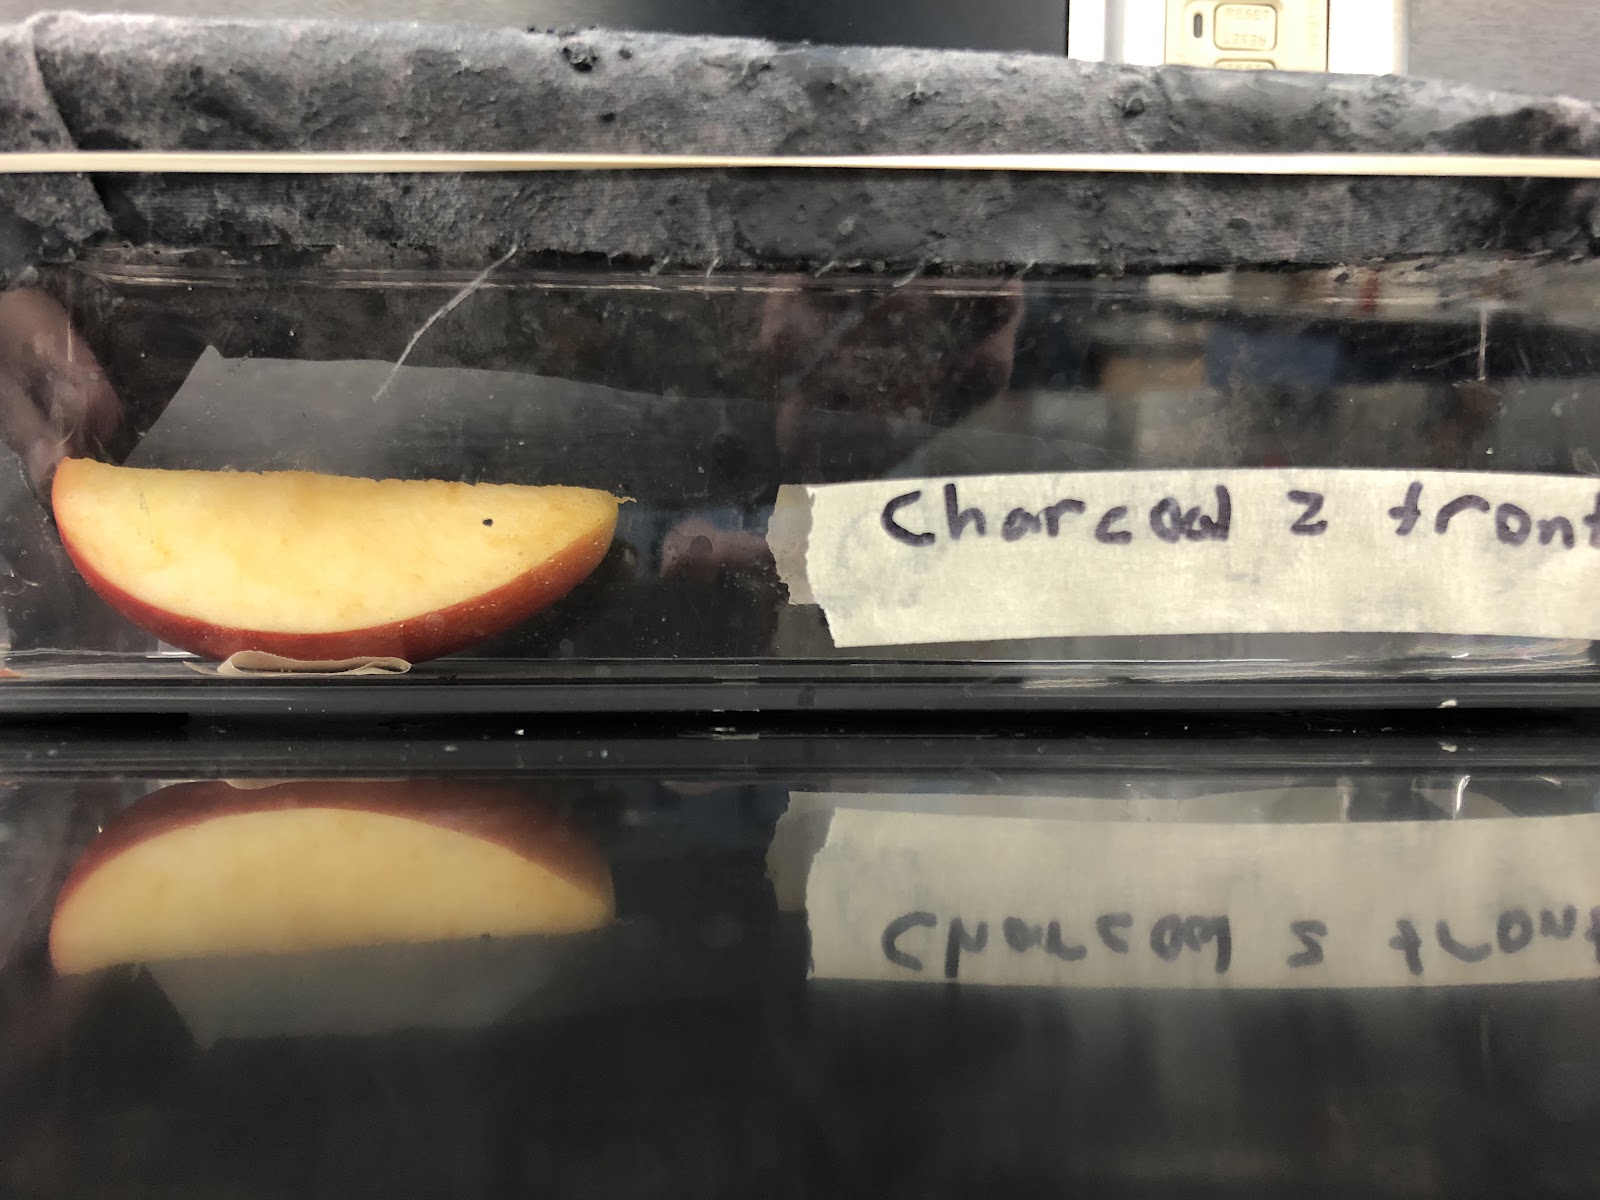 RESET
RESET
Charcoal 2 front